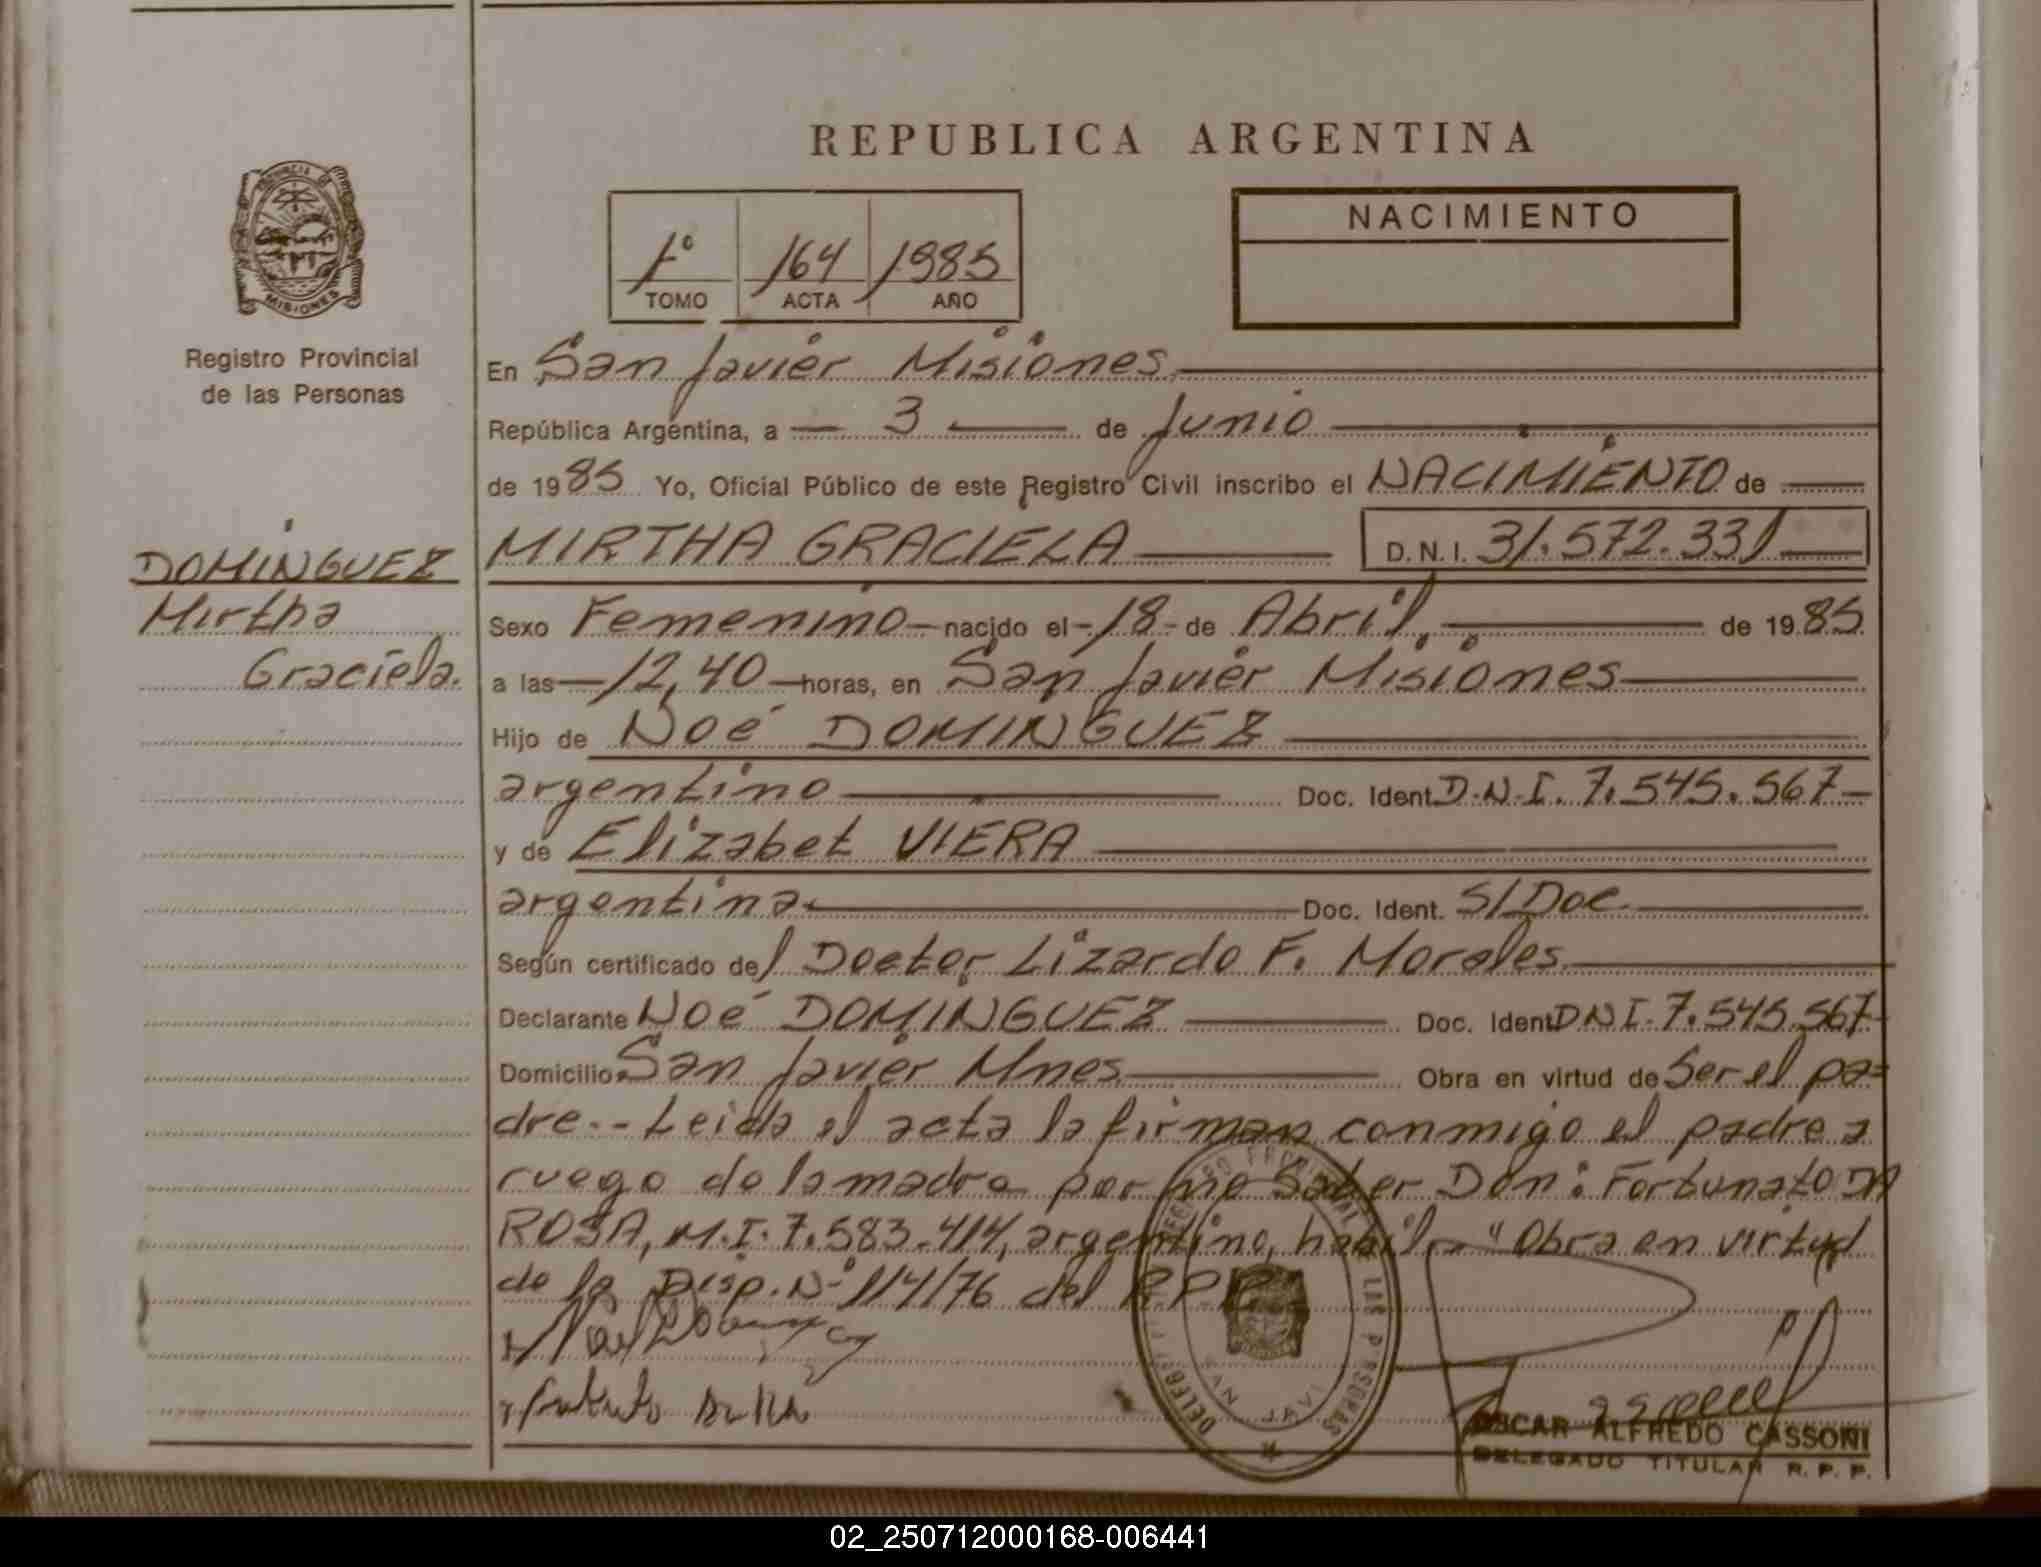 REPUBLICA ARGENTINA
PROVINCIA DE
MISIONES
Registro Provincial
de las Personas
1º 164 1985
TOMO ACTA AÑO
NACIMIENTO
En San Javier Misiones
República Argentina, a 3 de Junio
de 1985 Yo, Oficial Público de este Registro Civil inscribo el NACIMIENTO de
DOMINGUEZ
Mirtha
Graciela.
MIRTHA GRACIELA D.N.I. 31.572.331
Sexo Femenino nacido el 18 de Abril de 1985
a las 12,40 horas, en San Javier Misiones
Hijo de Noé DOMINGUEZ
argentino Doc. Ident. D.N.I. 7.545.567
y de Elizabet VIERA
argentina Doc. Ident. S/Doc.
Según certificado del Doctor Lizardo F. Morales
Declarante Noé DOMINGUEZ Doc. Ident. DNI. 7.545.567
Domicilio San Javier Mnes Obra en virtud de Ser el pa=
dre.-- Leida el acta la firman conmigo el padre a
ruego de la madre por no Saber Don: Fortunato DA
ROSA, M.I. 7.583.414, argentino, habil.- "Obra en virtud
de la Disp. Nº 114/76 del R.P.P.
OSCAR ALFREDO CASSONI
DELEGADO TITULAR R. P. P.
02_250712000168-006441